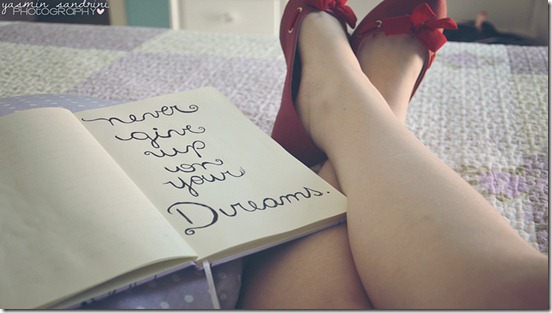 yasmin sandrini
PHOTOGRAPHY♥
never
give
up
on
your
Dreams.